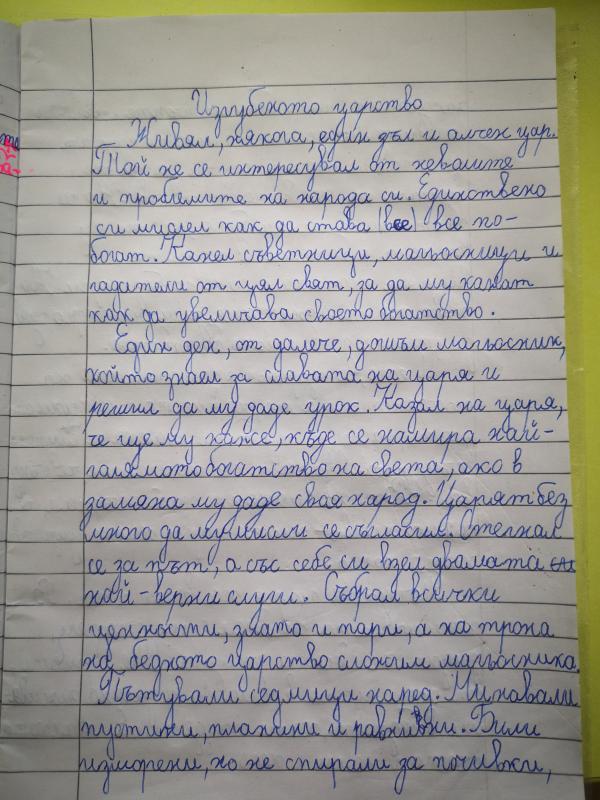 Изгубеното царство
Живял, някога, един зъл и алчен цар.
Той не се интересувал от неволите
и проблемите на народа си. Единствено
си мислел как да става (все) все по-
богат. Канел съветници, магьосници и
гадатели от цял свят, за да му кажат
как да увеличава своето богатство.
Един ден, от далече, дошъл магьосник,
който знаел за славата на царя и
решил да му даде урок. Казал на царя,
че ще му каже, къде се намира най-
голямото богатство на света, ако в
замяна му даде своя народ. Царят без
много да му мисли се съгласил. Стегнал
се за път, а със себе си взел двамата си
най-верни слуги. Събрал всички
ценности, злато и пари, а на трона
на бедното царство сложил магьосника.
Пътували седмици наред. Минавали
пустини, планини и равнини. Били
изморени, но не спирали за почивки,